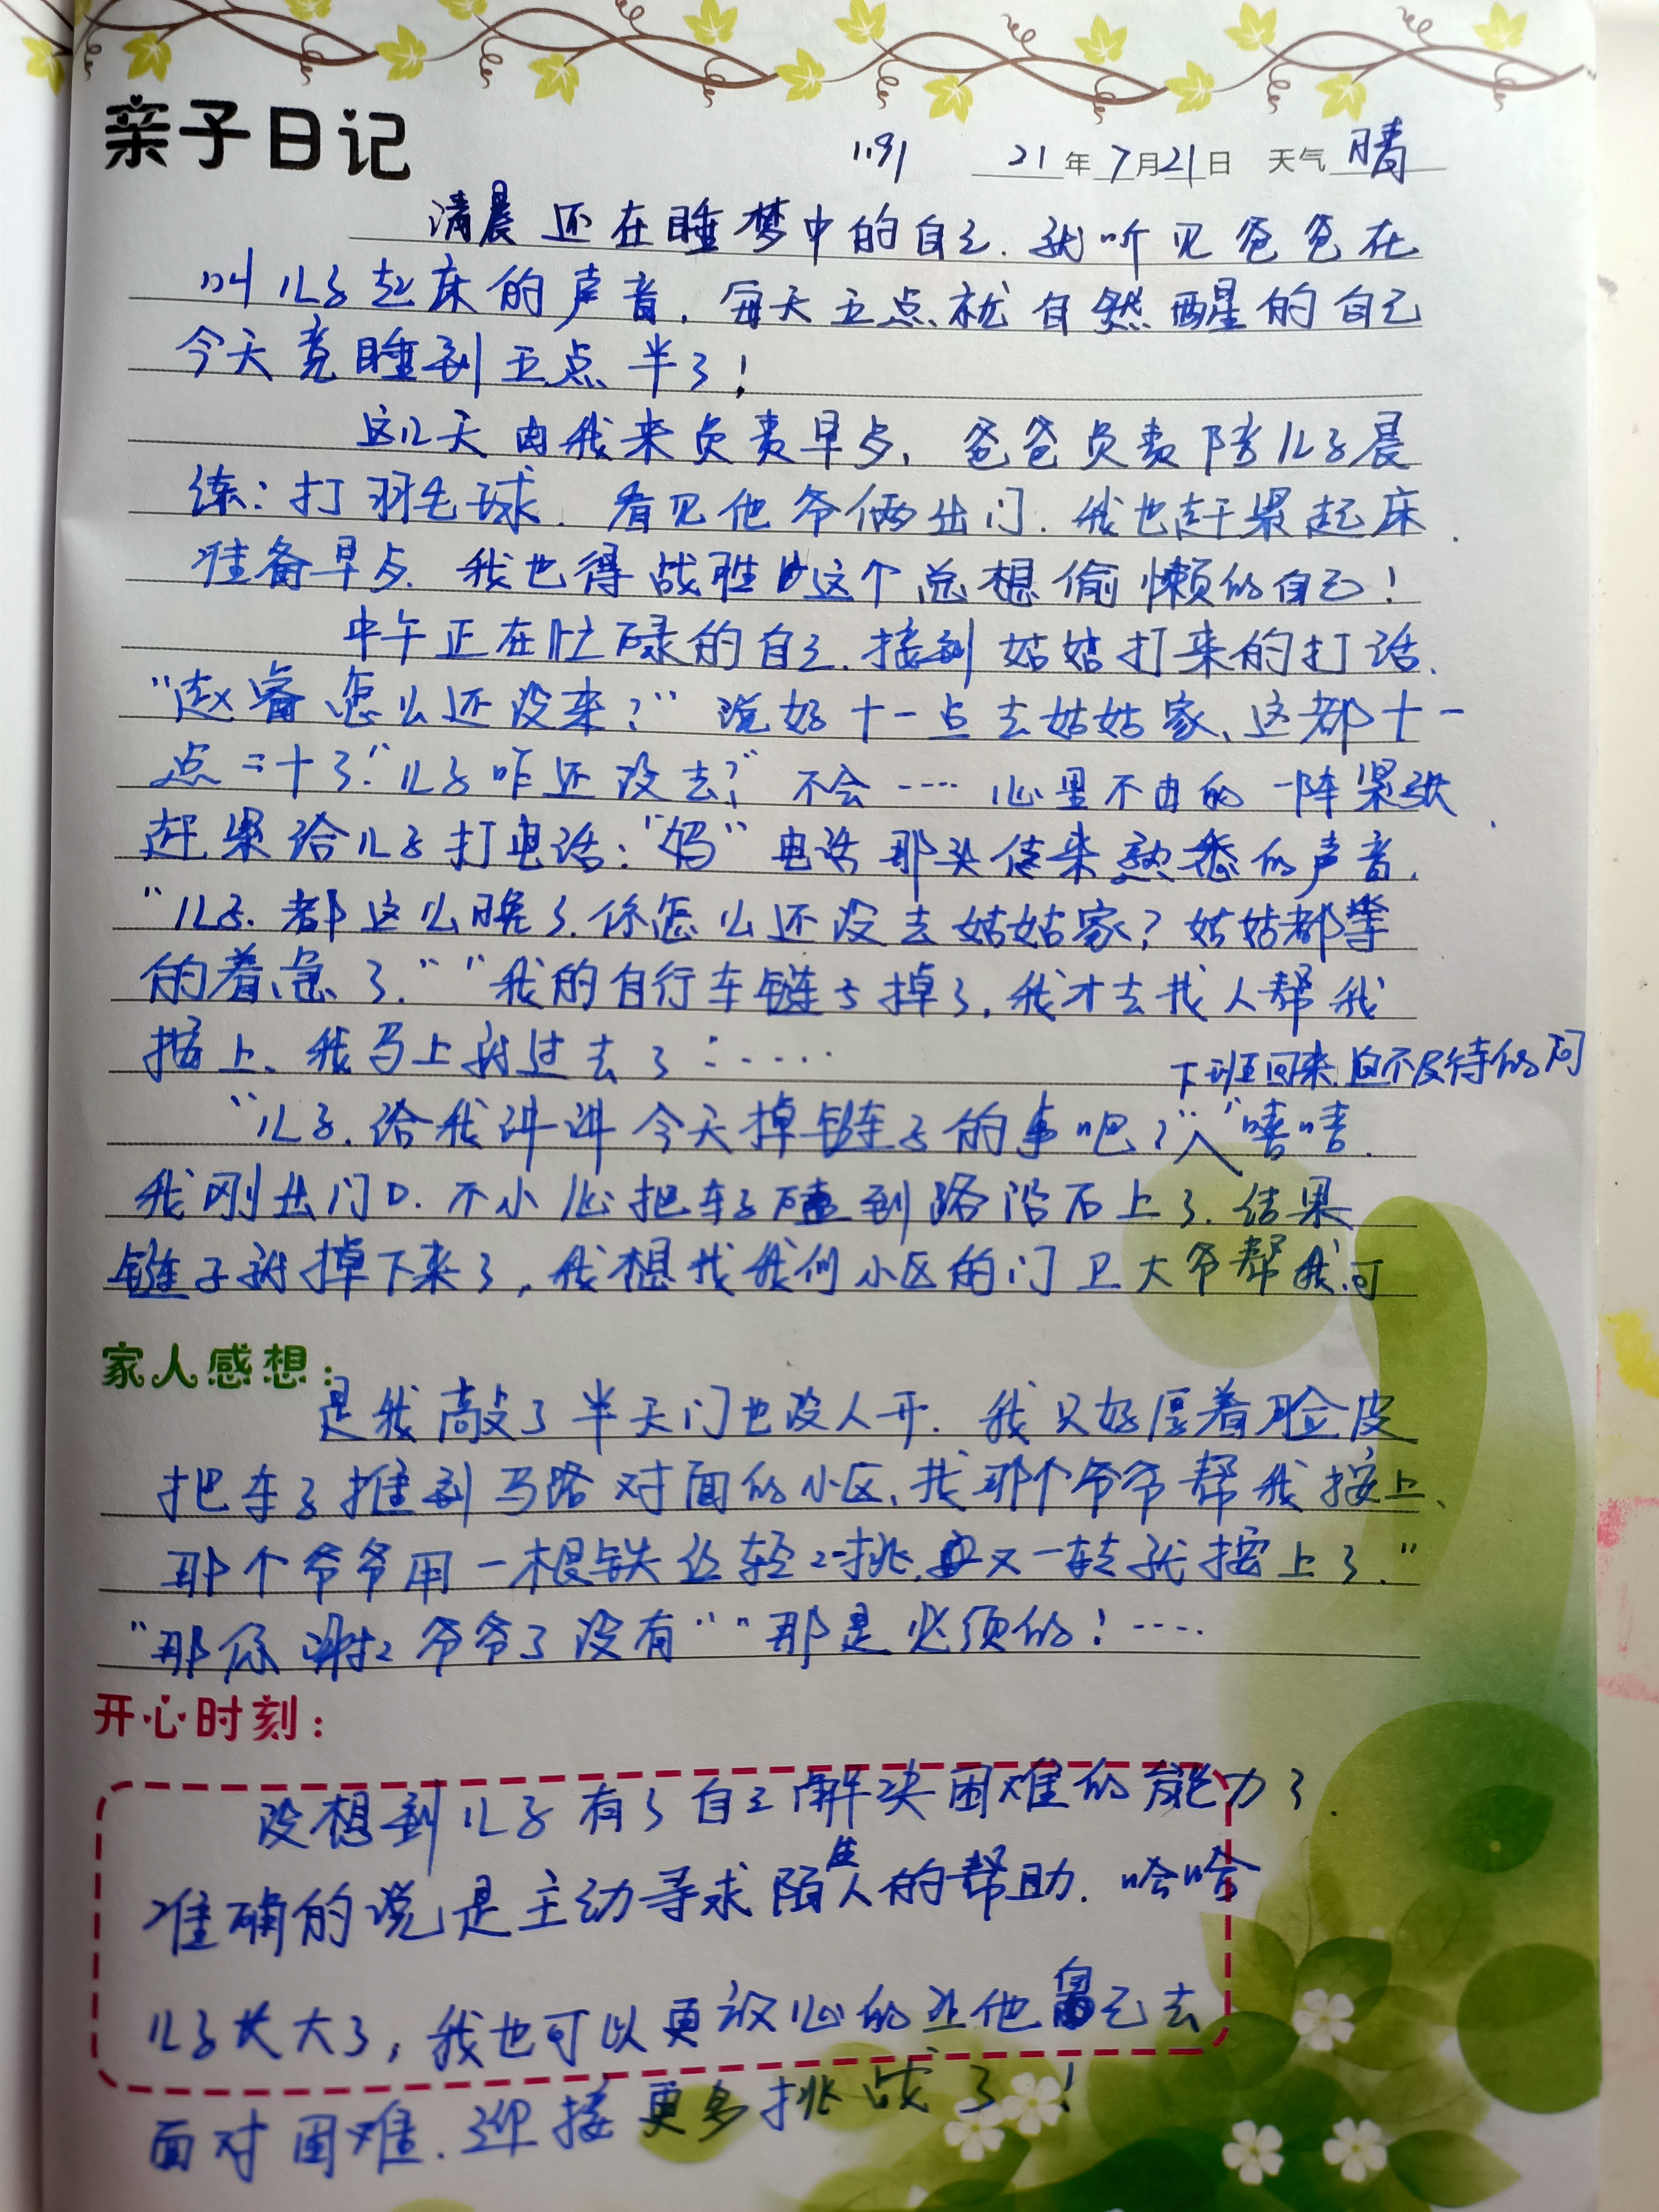 亲子日记
1191 21年7月21日 天气 晴
清晨还在睡梦中的自己.就听见爸爸在
叫儿子起床的声音.每天五点就自然醒的自己
今天竟睡到五点半了!
这几天由我来负责早点,爸爸负责陪儿子晨
练:打羽毛球.看见他爷俩出门.我也赶紧起床.
准备早点.我也得战胜这个总想偷懒的自己!
中午正在忙碌的自己.接到姑姑打来的打话.
“赵睿怎么还没来?”说好十一点去姑姑家、这都十一
点二十了!“儿子咋还没去?”不会……心里不由的一阵紧张.
赶紧给儿子打电话:“妈”电话那头传来熟悉的声音.
“儿子.都这么晚了.你怎么还没去姑姑家?姑姑都等
的着急了.”“我的自行车链子掉了,我才去找人帮我
按上、我马上就过去了……
下班回来迫不及待的问
“儿子.给我讲讲今天掉链子的事吧?”“嘻嘻.
我刚出门口.不小心把车子碰到路沿石上了.结果
链子就掉下来了,我想找我们小区的门卫大爷帮我.可
家人感想:
是我敲了半天门也没人开.我只好厚着脸皮
把车子推到马路对面的小区、找那个爷爷帮我按上、
那个爷爷用一根铁丝轻轻一挑,又一转就按上了.”
“那你谢谢爷爷了没有”“那是必须的!……
开心时刻:
没想到儿子有了自己解决困难的能力了.
准确的说是主动寻求陌生人的帮助.哈哈
儿子长大了,我也可以更放心的让他自己去
面对困难.迎接更多挑战了!